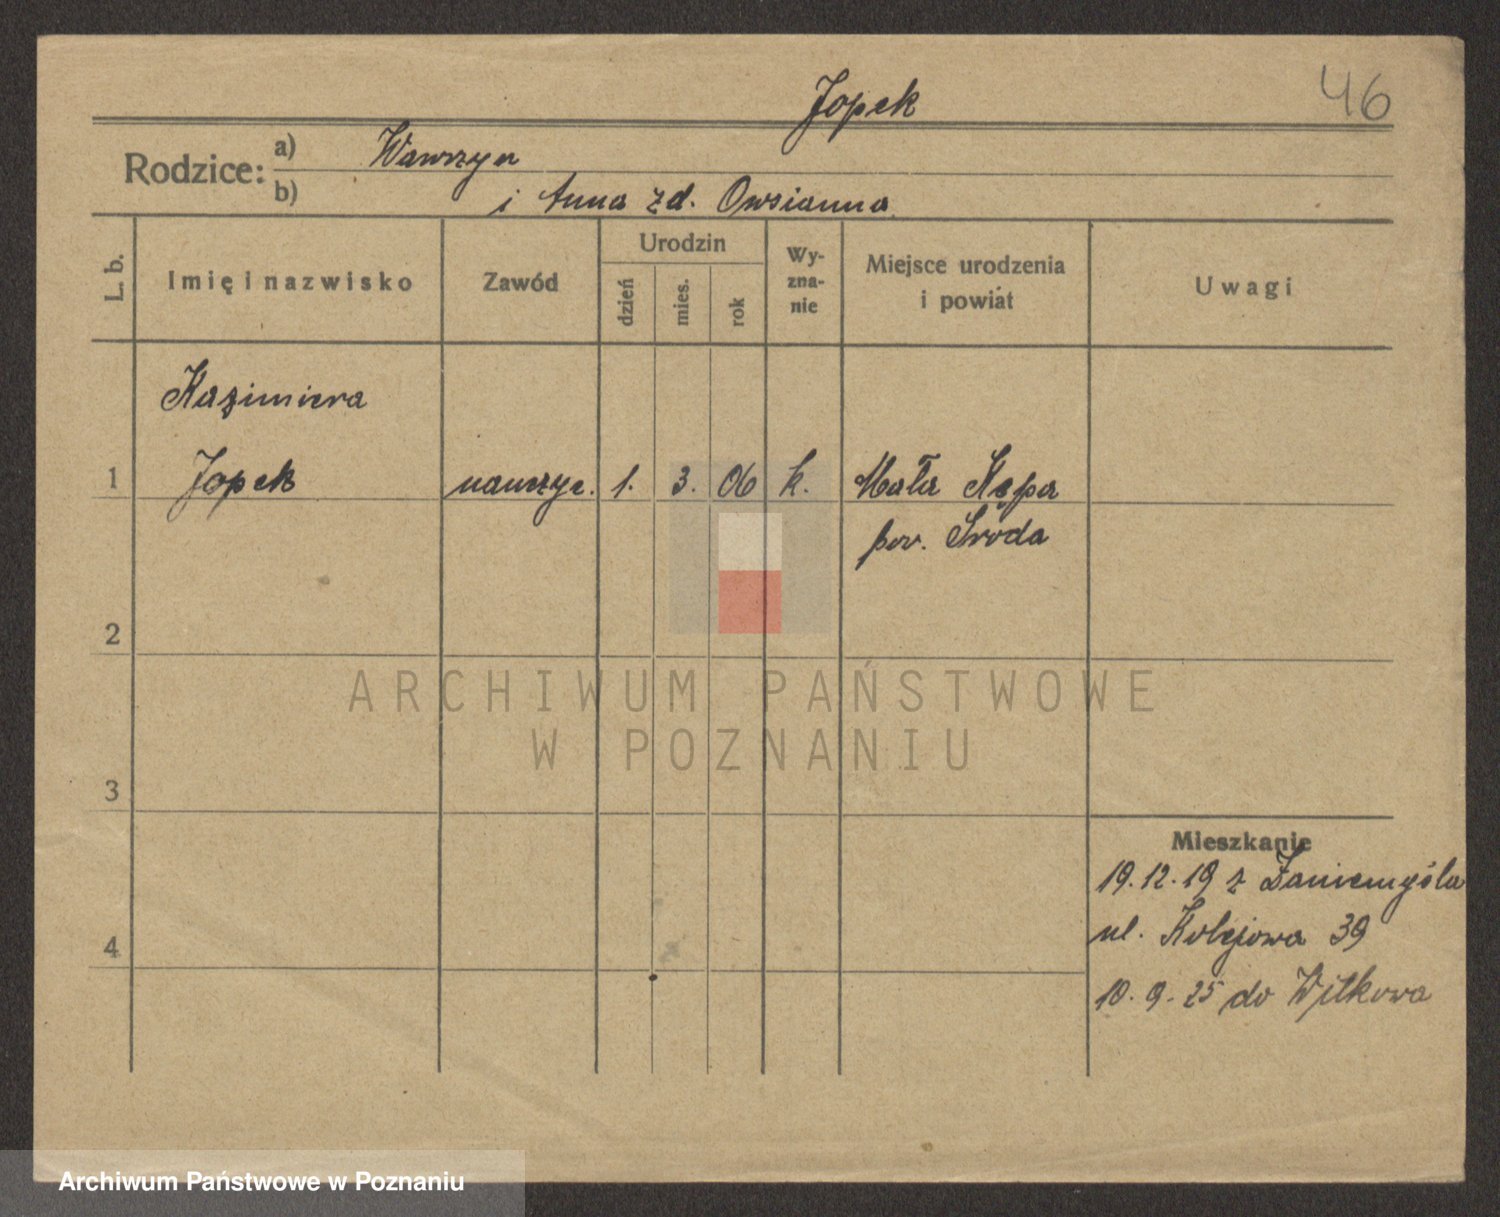 46
Jopek
Rodzice:
a) Wawrzyn
b) i Anna zd. Owsianna
L. b.
Imię i nazwisko
Zawód
Urodzin
dzień
mies.
rok
Wy-
zna-
nie
Miejsce urodzenia
i powiat
Uwagi
Kazimiera
1 Jopek nauczyc. 1. 3. 06 k. Mała Kępa
pow. Środa
2
ARCHIWUM PAŃSTWOWE
W POZNANIU
3
Mieszkanie
19.12.19 z Zaniemyśla
ul. Kolejowa 39
4
10. 9. 25 do Witkowa
Archiwum Państwowe w Poznaniu